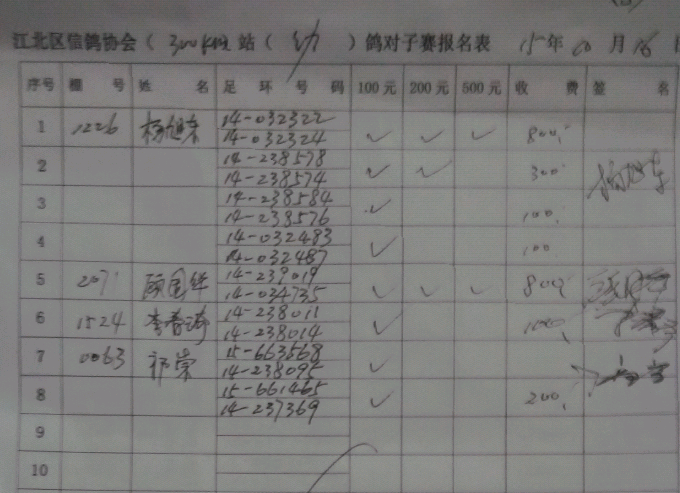 江北区信鸽协会（300km站（幼）鸽对子赛报名表 15年10月16日
序号 棚号 姓名 足环号码 100元 200元 500元 收费 签名
1 1226 杨旭东 14-032322 14-032324 ✓ ✓ ✓ 800 杨旭东
2 14-238578 14-238574 ✓ ✓ 300
3 14-238584 14-238576 ✓ 100
4 14-032483 14-032487 ✓ 100
5 2071 顾国华 14-239019 14-034735 ✓ ✓ ✓ 800
6 1524 李春涛 14-238011 14-238014 ✓ 100
7 0063 祁崇 15-663568 14-238095 ✓
8 15-661465 14-237369 ✓ 200
9
10